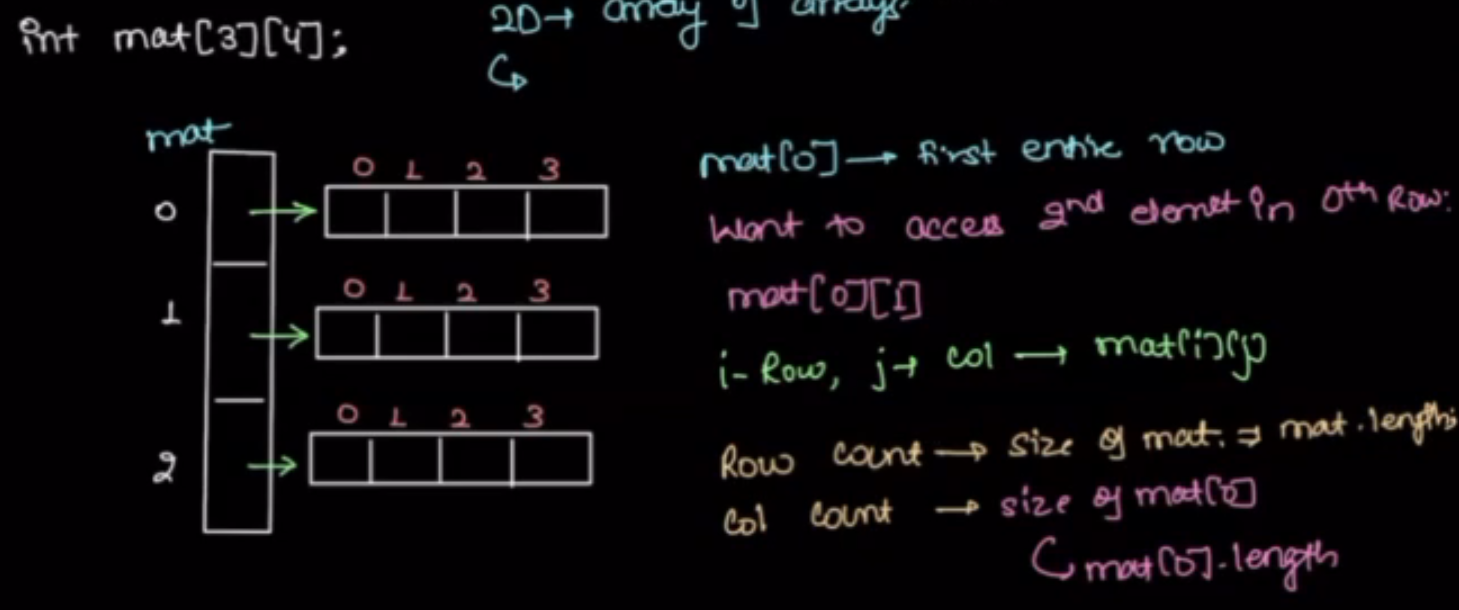 int mat[3][4];
2D→ array of arrays.
mat
0 1 2 3
0
0 1 2 3
1
0 1 2 3
2
mat[0]→ first entire row
Want to access 2nd elemet in 0th Row:
mat[0][1]
i- Row, j→ col → mat[i][j]
Row count → size of mat. ⇒ mat.length;
Col count → size of mat[0]
mat[0].length